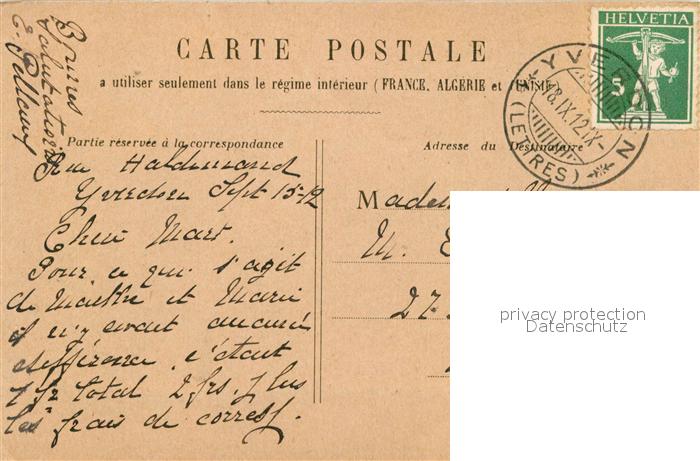 CARTE POSTALE
a utiliser seulement dans le régime intérieur (FRANCE, ALGÉRIE et TUNISIE
HELVETIA
5
YVERDON
18.IX.12.IX-
(LETTRES)
Partie réservée à la correspondance
Adresse du Destinataire
Rue Haldimand
Yverdon Sept 15-12
Pour ce qui s'agit
de et Marie
il n'y avait aucune
différence, c'était
1 fr total 2 frs.
les frais de corresp.
M. E
27.
privacy protection
Datenschutz